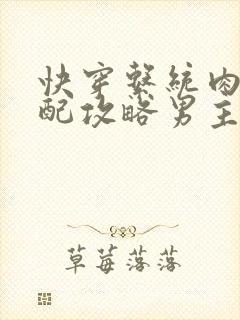 快穿系統肉
配攻略男主
草莓落落